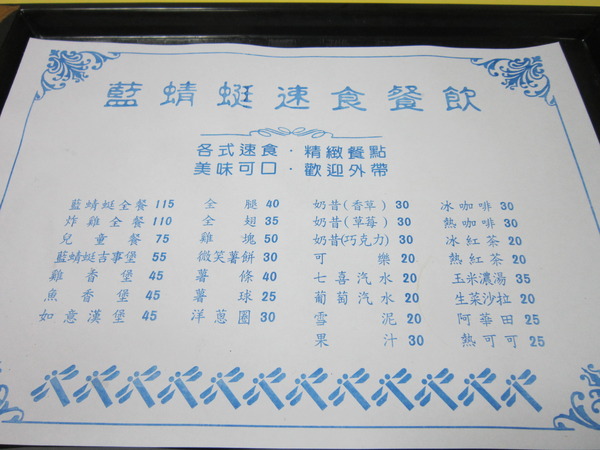 藍蜻蜓速食餐飲
各式速食．精緻餐點
美味可口．歡迎外帶
藍蜻蜓全餐 115
炸雞全餐 110
兒童餐 75
藍蜻蜓吉事堡 55
雞香堡 45
魚香堡 45
如意漢堡 45
全腿 40
全翅 35
雞塊 50
微笑薯餅 30
薯條 40
薯球 25
洋蔥圈 30
奶昔(香草) 30
奶昔(草莓) 30
奶昔(巧克力) 30
可樂 20
七喜汽水 20
葡萄汽水 20
雪泥 20
果汁 30
冰咖啡 30
熱咖啡 30
冰紅茶 20
熱紅茶 20
玉米濃湯 35
生菜沙拉 20
阿華田 25
熱可可 25